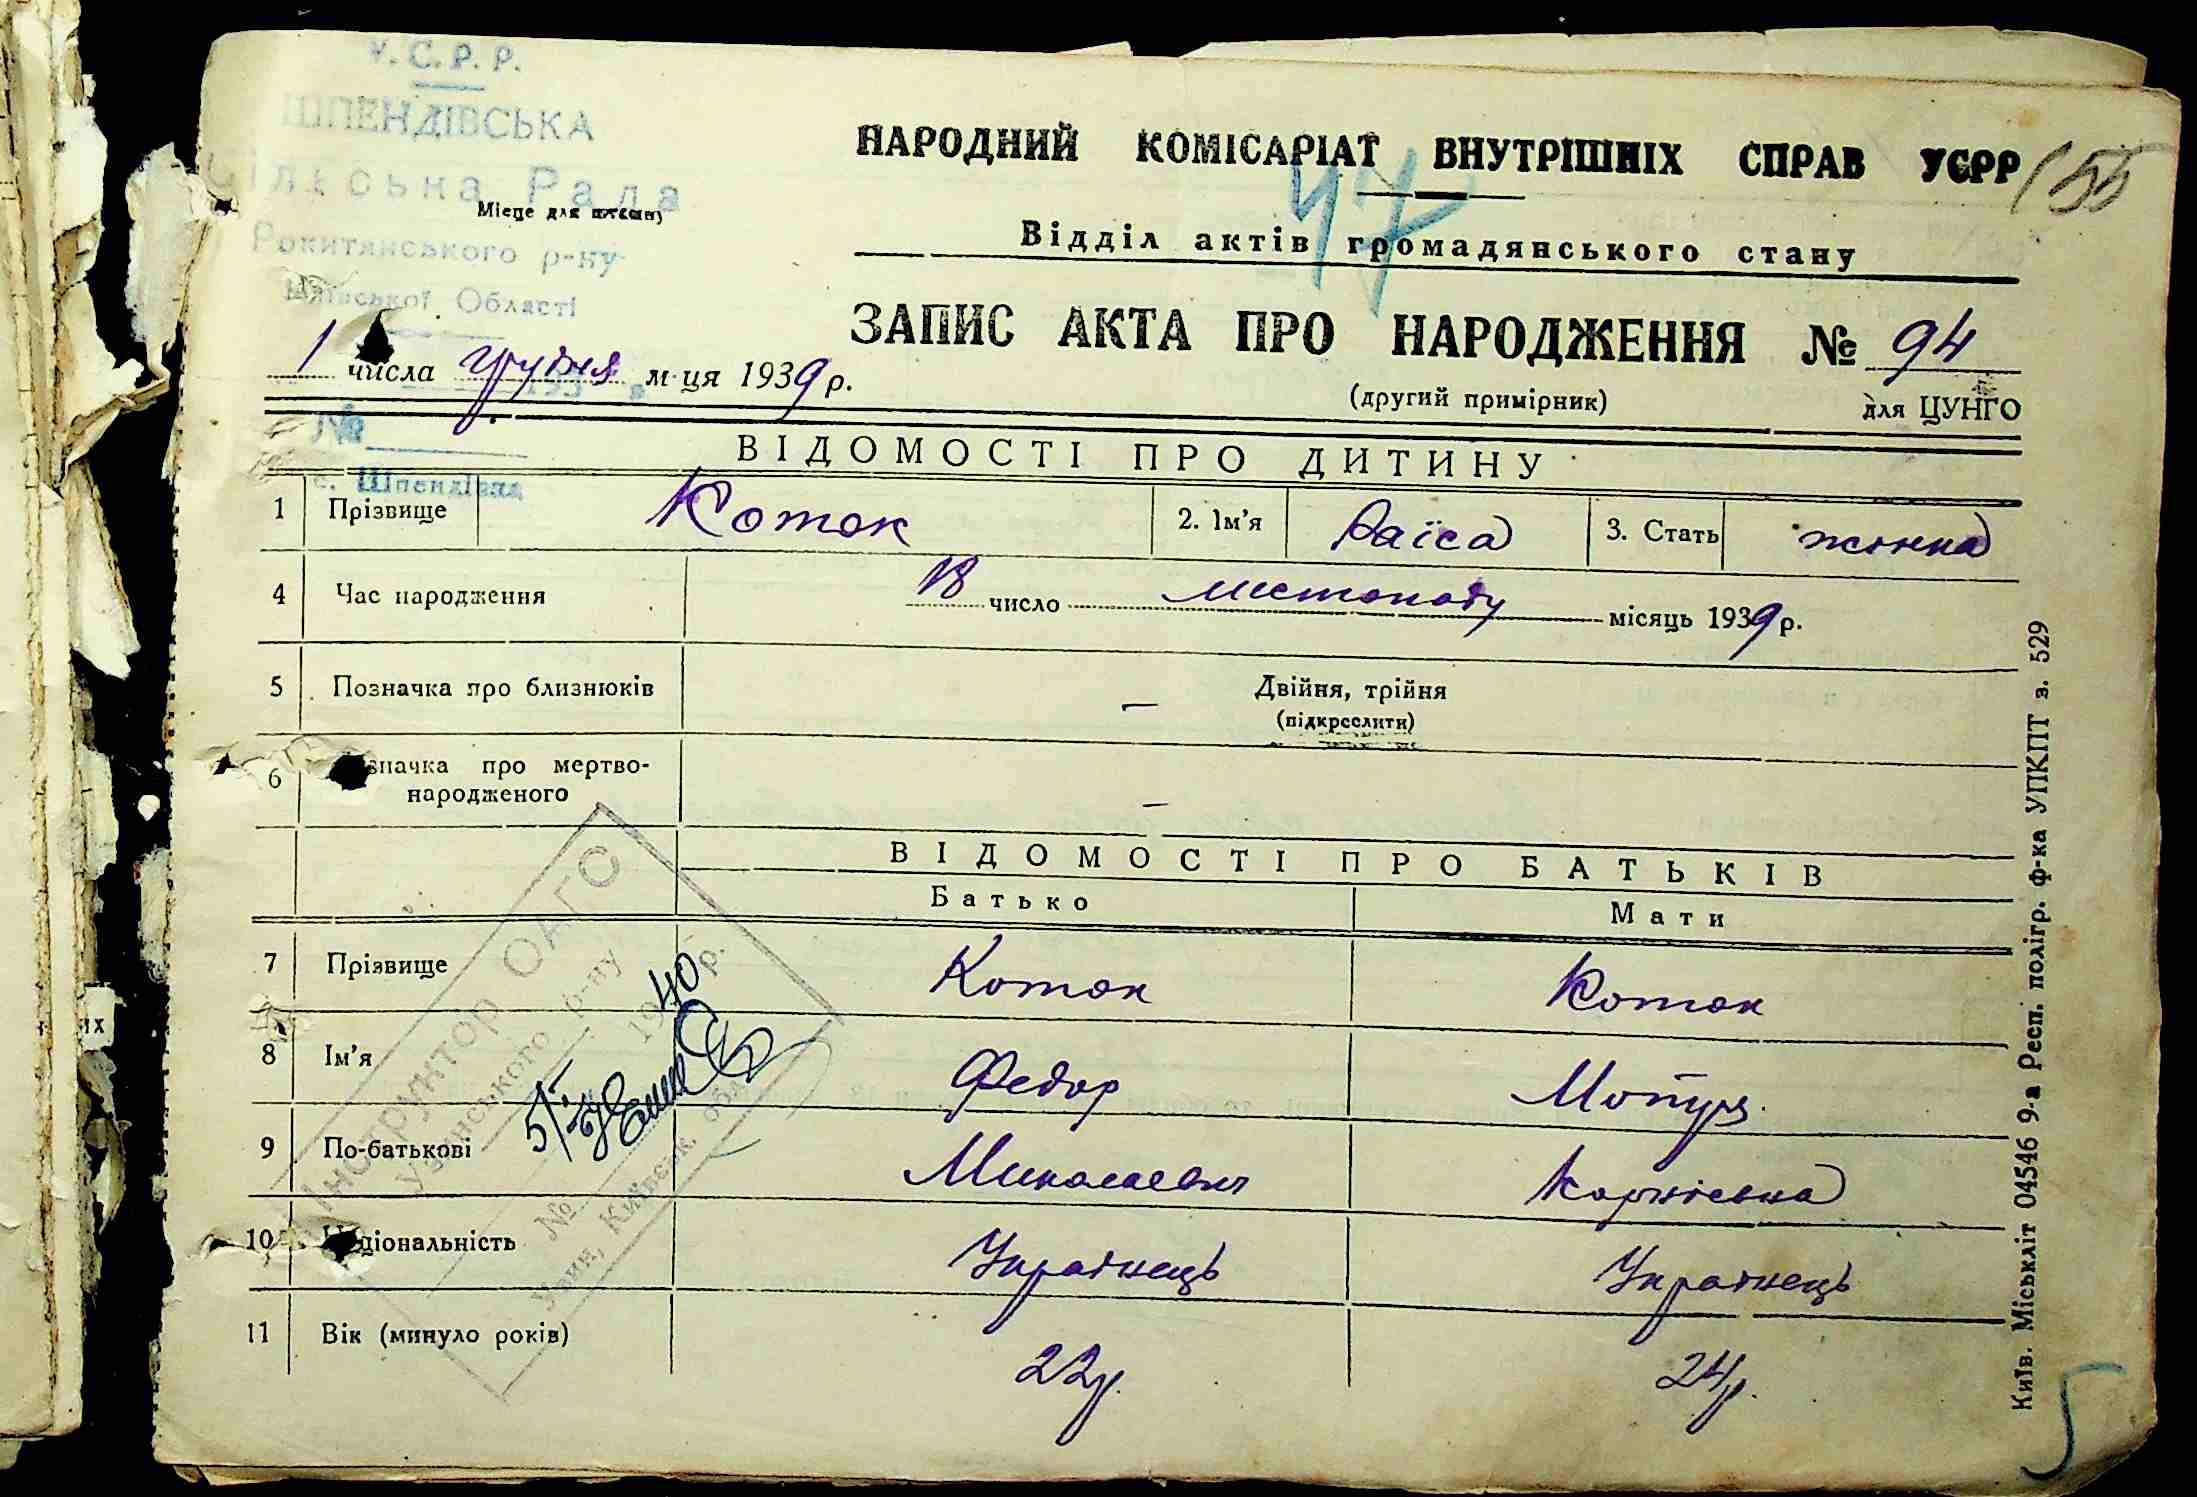 У.С.Р.Р.
ШПЕНДІВСЬКА
Сільська Рада
Місце для штампу
Рокитянського р-ну
Київської Області
НАРОДНИЙ КОМІСАРІАТ ВНУТРІШНІХ СПРАВ УСРР
155
47
Відділ актів громадянського стану
ЗАПИС АКТА ПРО НАРОДЖЕННЯ № 94
1 числа грудня м-ця 1939 р.
(другий примірник) для ЦУНГО
№
с. Шпендівка
ВІДОМОСТІ ПРО ДИТИНУ
1 Прізвище Коток 2. Ім'я Раїса 3. Стать жінка
4 Час народження 18 число листопаду місяць 1939 р.
5 Позначка про близнюків — Двійня, трійня
(підкреслити)
6 значка про мертво-
народженого —
ВІДОМОСТІ ПРО БАТЬКІВ
Батько Мати
7 Прізвище Коток Коток
8 Ім'я Федор Мотря
9 По-батькові Миколаевич Карпівна
10 Національність Українець Українець
11 Вік (минуло років) 22р. 24р.
Інструктор ОАГС
Узинського р-ну
5/I 1940 р.
№
Узин, Київськ. обл.
Київ. Міськліт 04546 9-а Респ. полігр. ф-ка УПКПТ з. 529
5